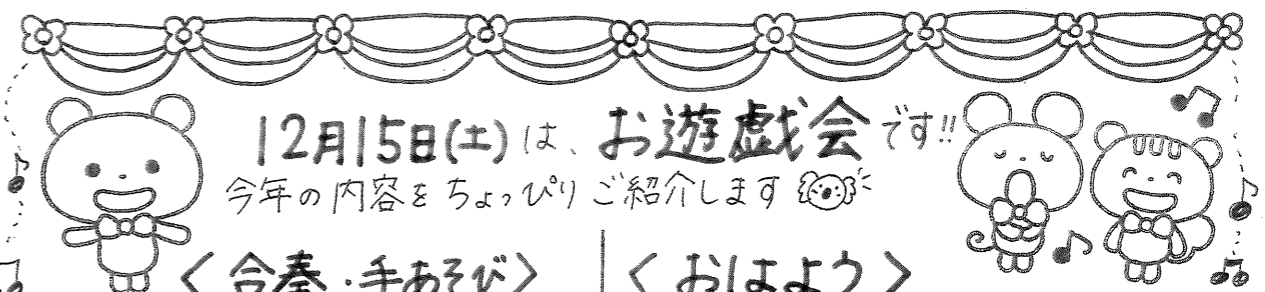 12月15日(土)は、お遊戯会です!!
今年の内容をちょっぴりご紹介します
<合奏・手あそび> <おはよう>